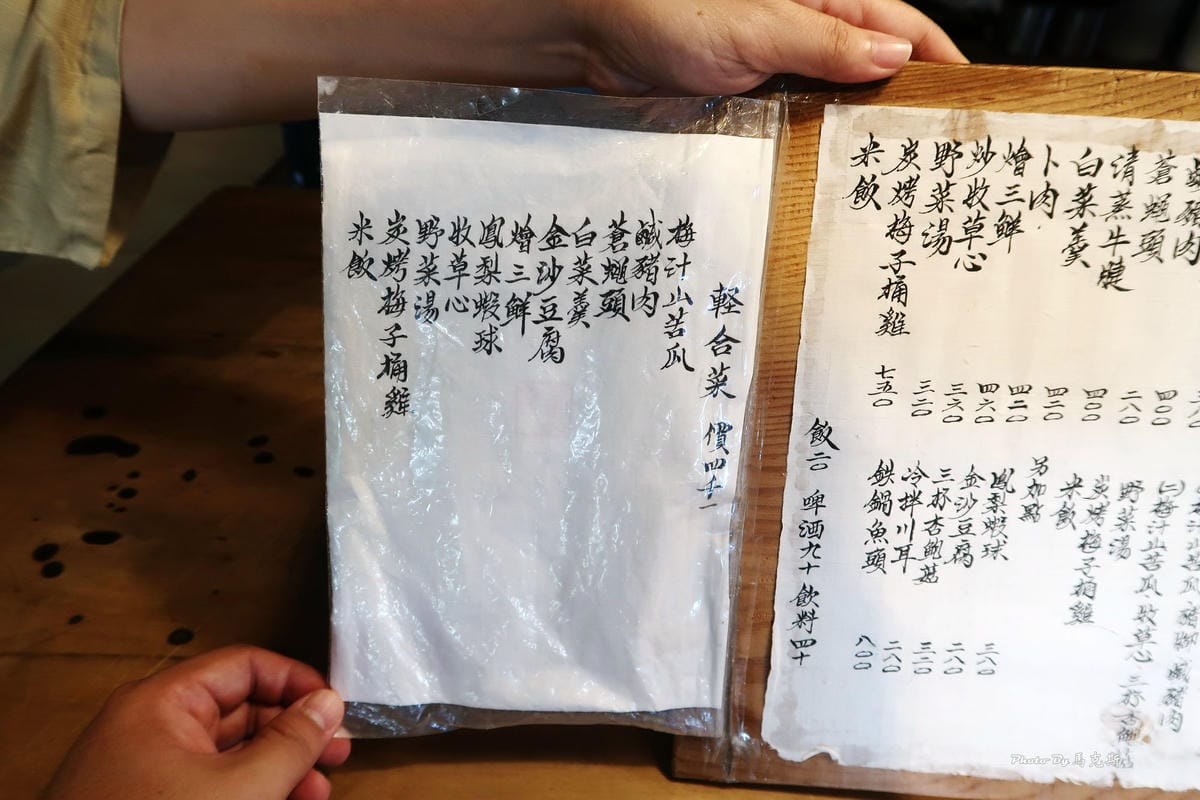 軽合菜 價四千一
梅汁山苦瓜
鹹豬肉
蒼蠅頭
白菜羹
金沙豆腐
燴三鮮
鳳梨蝦球
牧草心
野菜湯
炭烤梅子桶雞
米飲
鹹豬肉
蒼蠅頭 四〇〇
清蒸牛腱 二八〇
白菜羹 四〇〇
卜肉 四二〇
燴三鮮 四二〇
炒牧草心 四六〇
野菜湯 三六〇
炭烤梅子桶雞 三二〇
米飲 七五〇
㈡梅汁山苦瓜 牧草心 三杯杏鮑
野菜湯
炭烤梅子桶雞
米飲
另加點
鳳梨蝦球 三八〇
金沙豆腐 二八〇
三杯杏鮑菇 三二〇
冷拌川耳 二八〇
鉄鍋魚頭 八〇〇
飲二〇 啤酒九十 飲料四十
Photo By 馬克斯